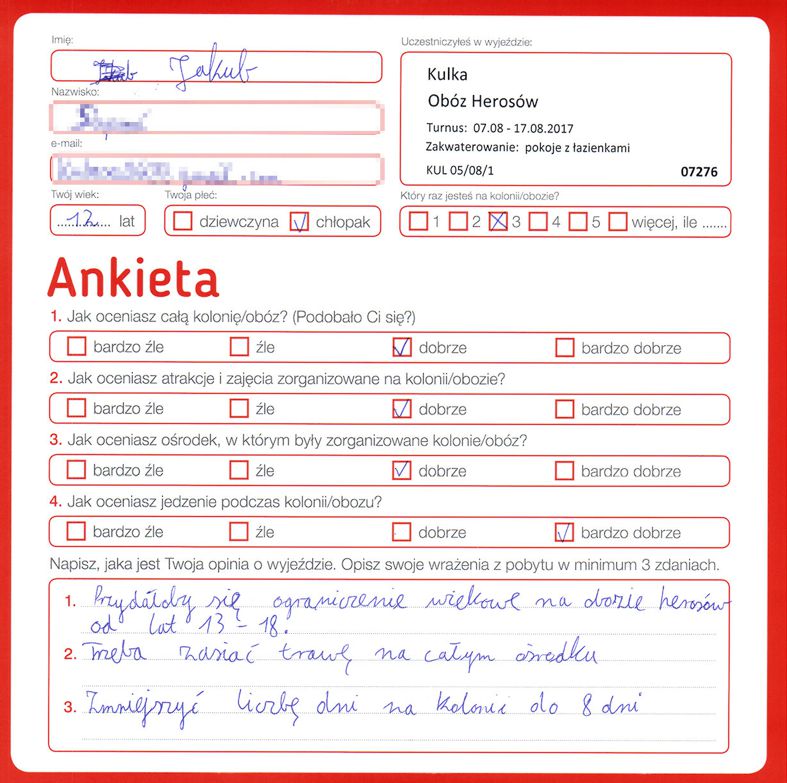 Imię:
Uczestniczyłeś w wyjeździe:
Jakub
Kulka
Nazwisko:
Obóz Herosów
Turnus: 07.08 - 17.08.2017
e-mail:
Zakwaterowanie: pokoje z łazienkami
KUL 05/08/1 07276
Twój wiek: Twoja płeć:
Który raz jesteś na kolonii/obozie?
12 lat dziewczyna chłopak
1 2 3 4 5 więcej, ile .......
Ankieta
1. Jak oceniasz całą kolonię/obóz? (Podobało Ci się?)
bardzo źle źle dobrze bardzo dobrze
2. Jak oceniasz atrakcje i zajęcia zorganizowane na kolonii/obozie?
bardzo źle źle dobrze bardzo dobrze
3. Jak oceniasz ośrodek, w którym były zorganizowane kolonie/obóz?
bardzo źle źle dobrze bardzo dobrze
4. Jak oceniasz jedzenie podczas kolonii/obozu?
bardzo źle źle dobrze bardzo dobrze
Napisz, jaka jest Twoja opinia o wyjeździe. Opisz swoje wrażenia z pobytu w minimum 3 zdaniach.
1. Przydałoby się ograniczenie wiekowe na obozie herosów
od lat 13 - 18.
2. Trzeba zasiać trawę na całym ośrodku
3. Zmniejszyć liczbę dni na kolonii do 8 dni